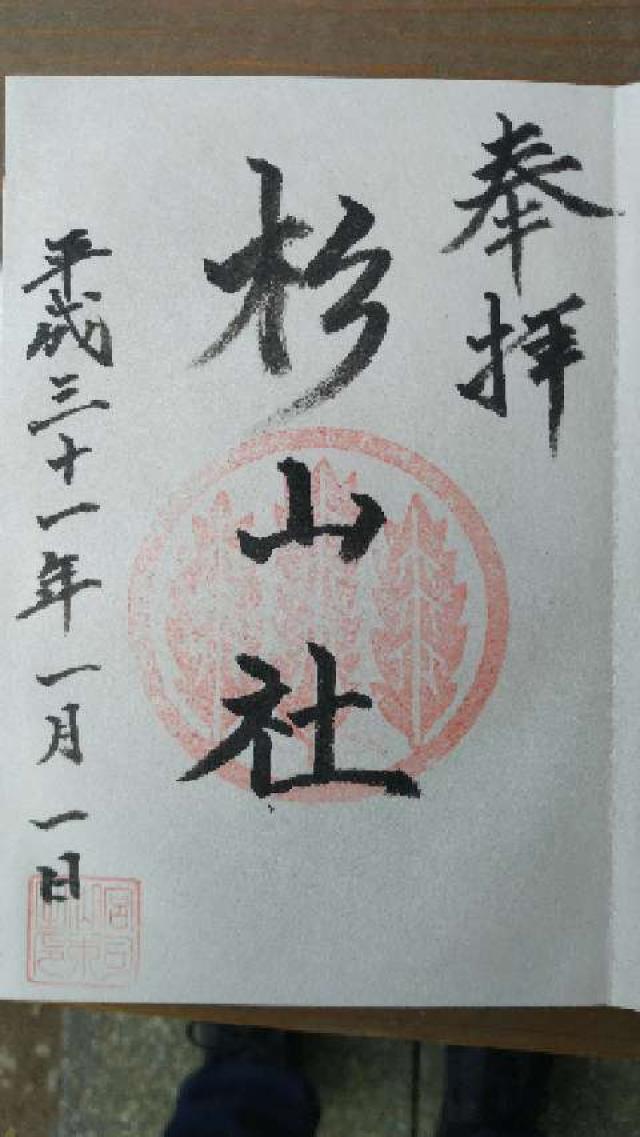 奉拝
杉山社
平成三十一年一月一日